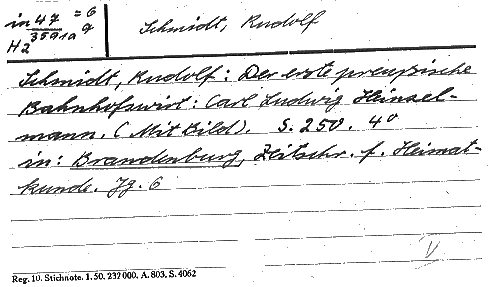 in 47 = 6
3591a 9
H2
Schmidt, Rudolf
Schmidt, Rudolf: Der erste preußische
Bahnhofswirt: Carl Ludwig Heinsel-
mann. (Mit Bild). S. 250. 4°
in: Brandenburg, Zeitschr. f. Heimat-
kunde. Jg. 6
V
Reg. 10. Stichnote. 1. 50. 232000. A. 803. S. 4062